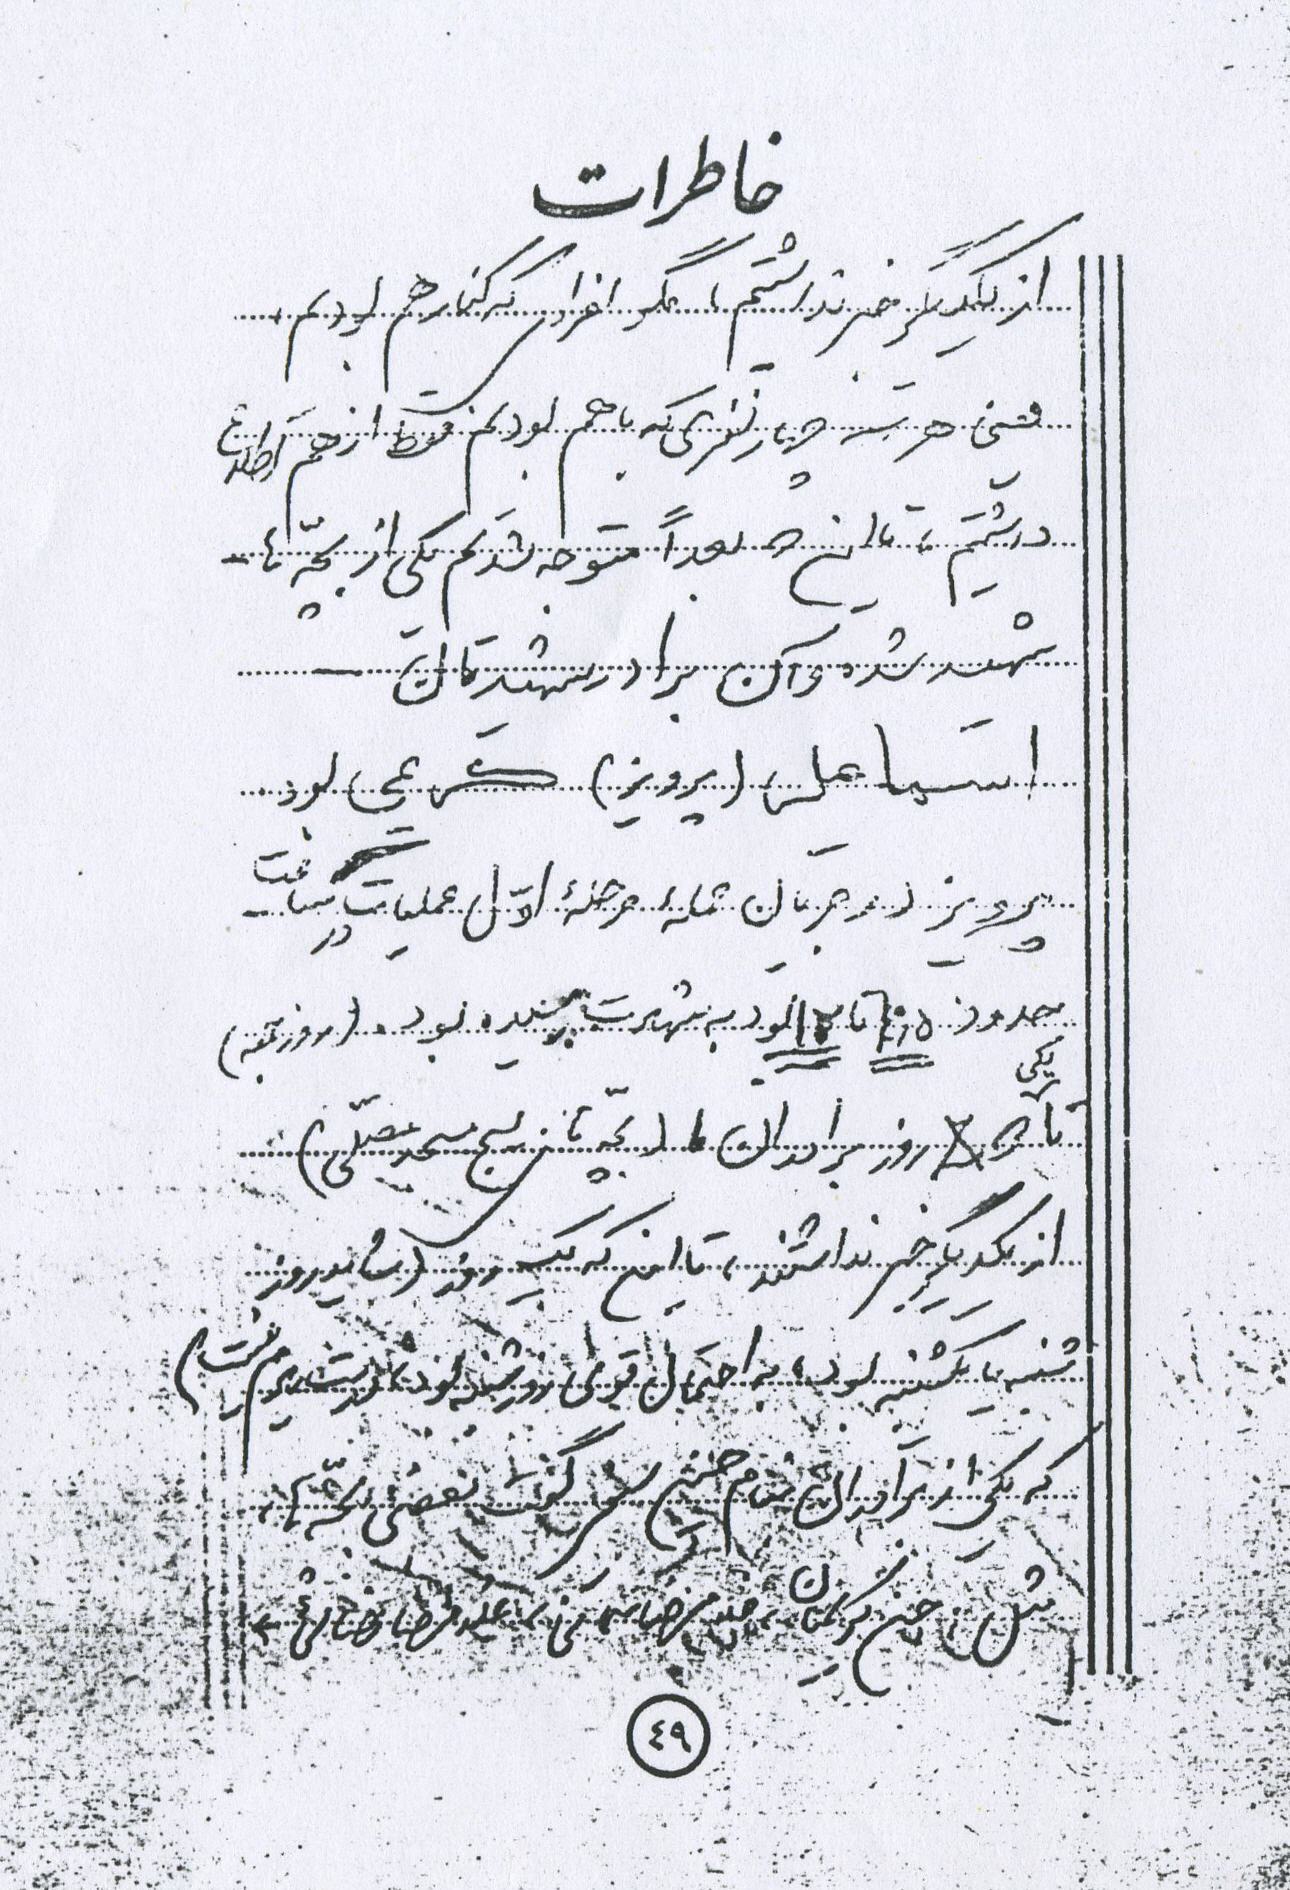 خاطرات
از یکدیگر خبر نداشتیم، مگر افرادی که کنار هم بودیم،
یعنی هر سه چهار نفری که با هم بودیم فقط از هم اطلاع
داشتیم، تا این که بعداً متوجه شدیم یکی از بچّه‌ها
شهید شده و آن برادر شهیدمان
اسماعیل (پرویز) بود.
پرویز در جریان حمله مرحلهٔ اوّل عملیات در ساعت
حدود ۱۰/۵ تا ۱۲ بود به شهادت رسیده بود. (روز جمعه)
تا یکی روز برادران ما (بچّه‌های بسیج مسجد مصلّی)
از یکدیگر خبر نداشتند، تا این که یک روز (شاید روز
شنبه یا یکشنبه بود، به احتمال قوی روز شنبه بود، درست یادم نیست)
که یکی از برادران به نام حسین گفت بعضی بچّه‌ها،
مثل حسین
۴۹